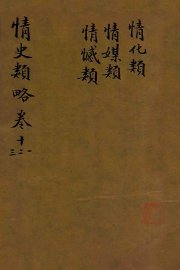 情化類
情媒類
情憾類
情史類略卷十一二三